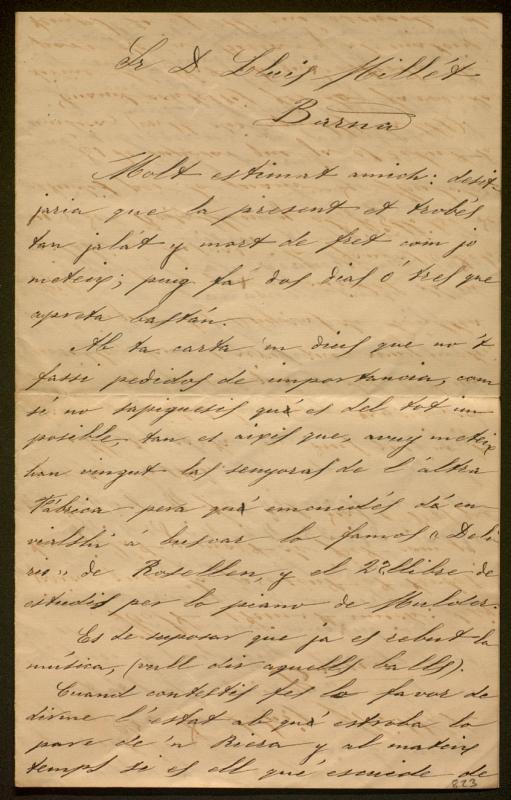 Sr D. Lluis Millét
Barna
Molt estimat amich: desit-
jaria que la present et trobés
tan jalát y mort de fret com jo
meteix; puig fá dos dias ó tres que
apreta bastán.
Ab ta carta 'm dius que no 't
fassi pedidos de importancia, com
si no sapiguesis qué es del tot im
posible, tan es aixis que, avuy meteix
han vingut las senyoras de l' áltra
Fábrica pera qué
á buscar lo famos "Deli-
rio" de Rosellen, y el 2º llibre de
estudis per lo piano de Mulder.
Es de suposar que ja es rebut la
música, (vull dir aquells balls).
Cuand contestis fes lo favor de
dirme l' estat ab qué estroba lo
pare de 'n Riera y al mateix
temps si es ell qué escuide de
823